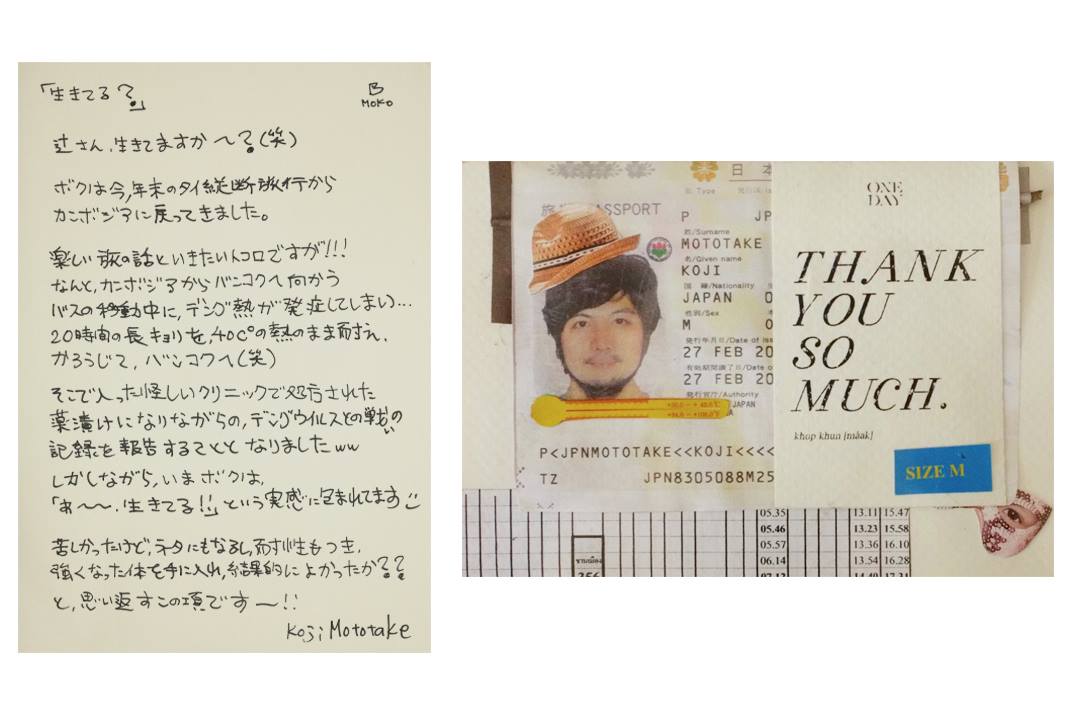 「生きてる?」
B
MOKO
辻さん、生きてますか〜?(笑)
ボクは今、年末のタイ縦断旅行から
カンボジアに戻ってきました。
楽しい旅の話といきたいトコロですが!!!
なんと、カンボジアからバンコクへ向かう
バスの移動中に、デング熱が発症してしまい…
20時間の長キョリを、40℃の熱のまま耐え、
かろうじて、バンコクへ(笑)
そこで入った怪しいクリニックで処方された
薬漬けになりながらの、デングウイルスとの戦いの
記録を報告することとなりましたww
しかしながら、いまボクは、
「あ〜〜、生きてる!!」という実感に包まれてます
苦しかったけど、ネタにもなるし、耐性もつき、
強くなった体を手に入れ、結果的によかったか??
と、思い返すこの頃です〜!!
Koji Mototake
日本
型/Type
旅 PASSPORT
P JP
姓/Surname
MOTOTAKE
名/Given name
KOJI
国籍/Nationality
JAPAN 0
性別/Sex
M 0
発行年月日/Date of iss
27 FEB 20
有効期間満了日/Date o
27 FEB 20
発行官庁/Authority
JAPAN
P<JPNMOTOTAKE<<KOJI<<<<
TZ JPN8305088M25
ONE
DAY
THANK
YOU
SO
MUCH.
khop khun [mâak]
SIZE M
05.35 13.11 15.47
05.46 13.23 15.58
05.57 13.36 16.10
06.14 13.54 16.28